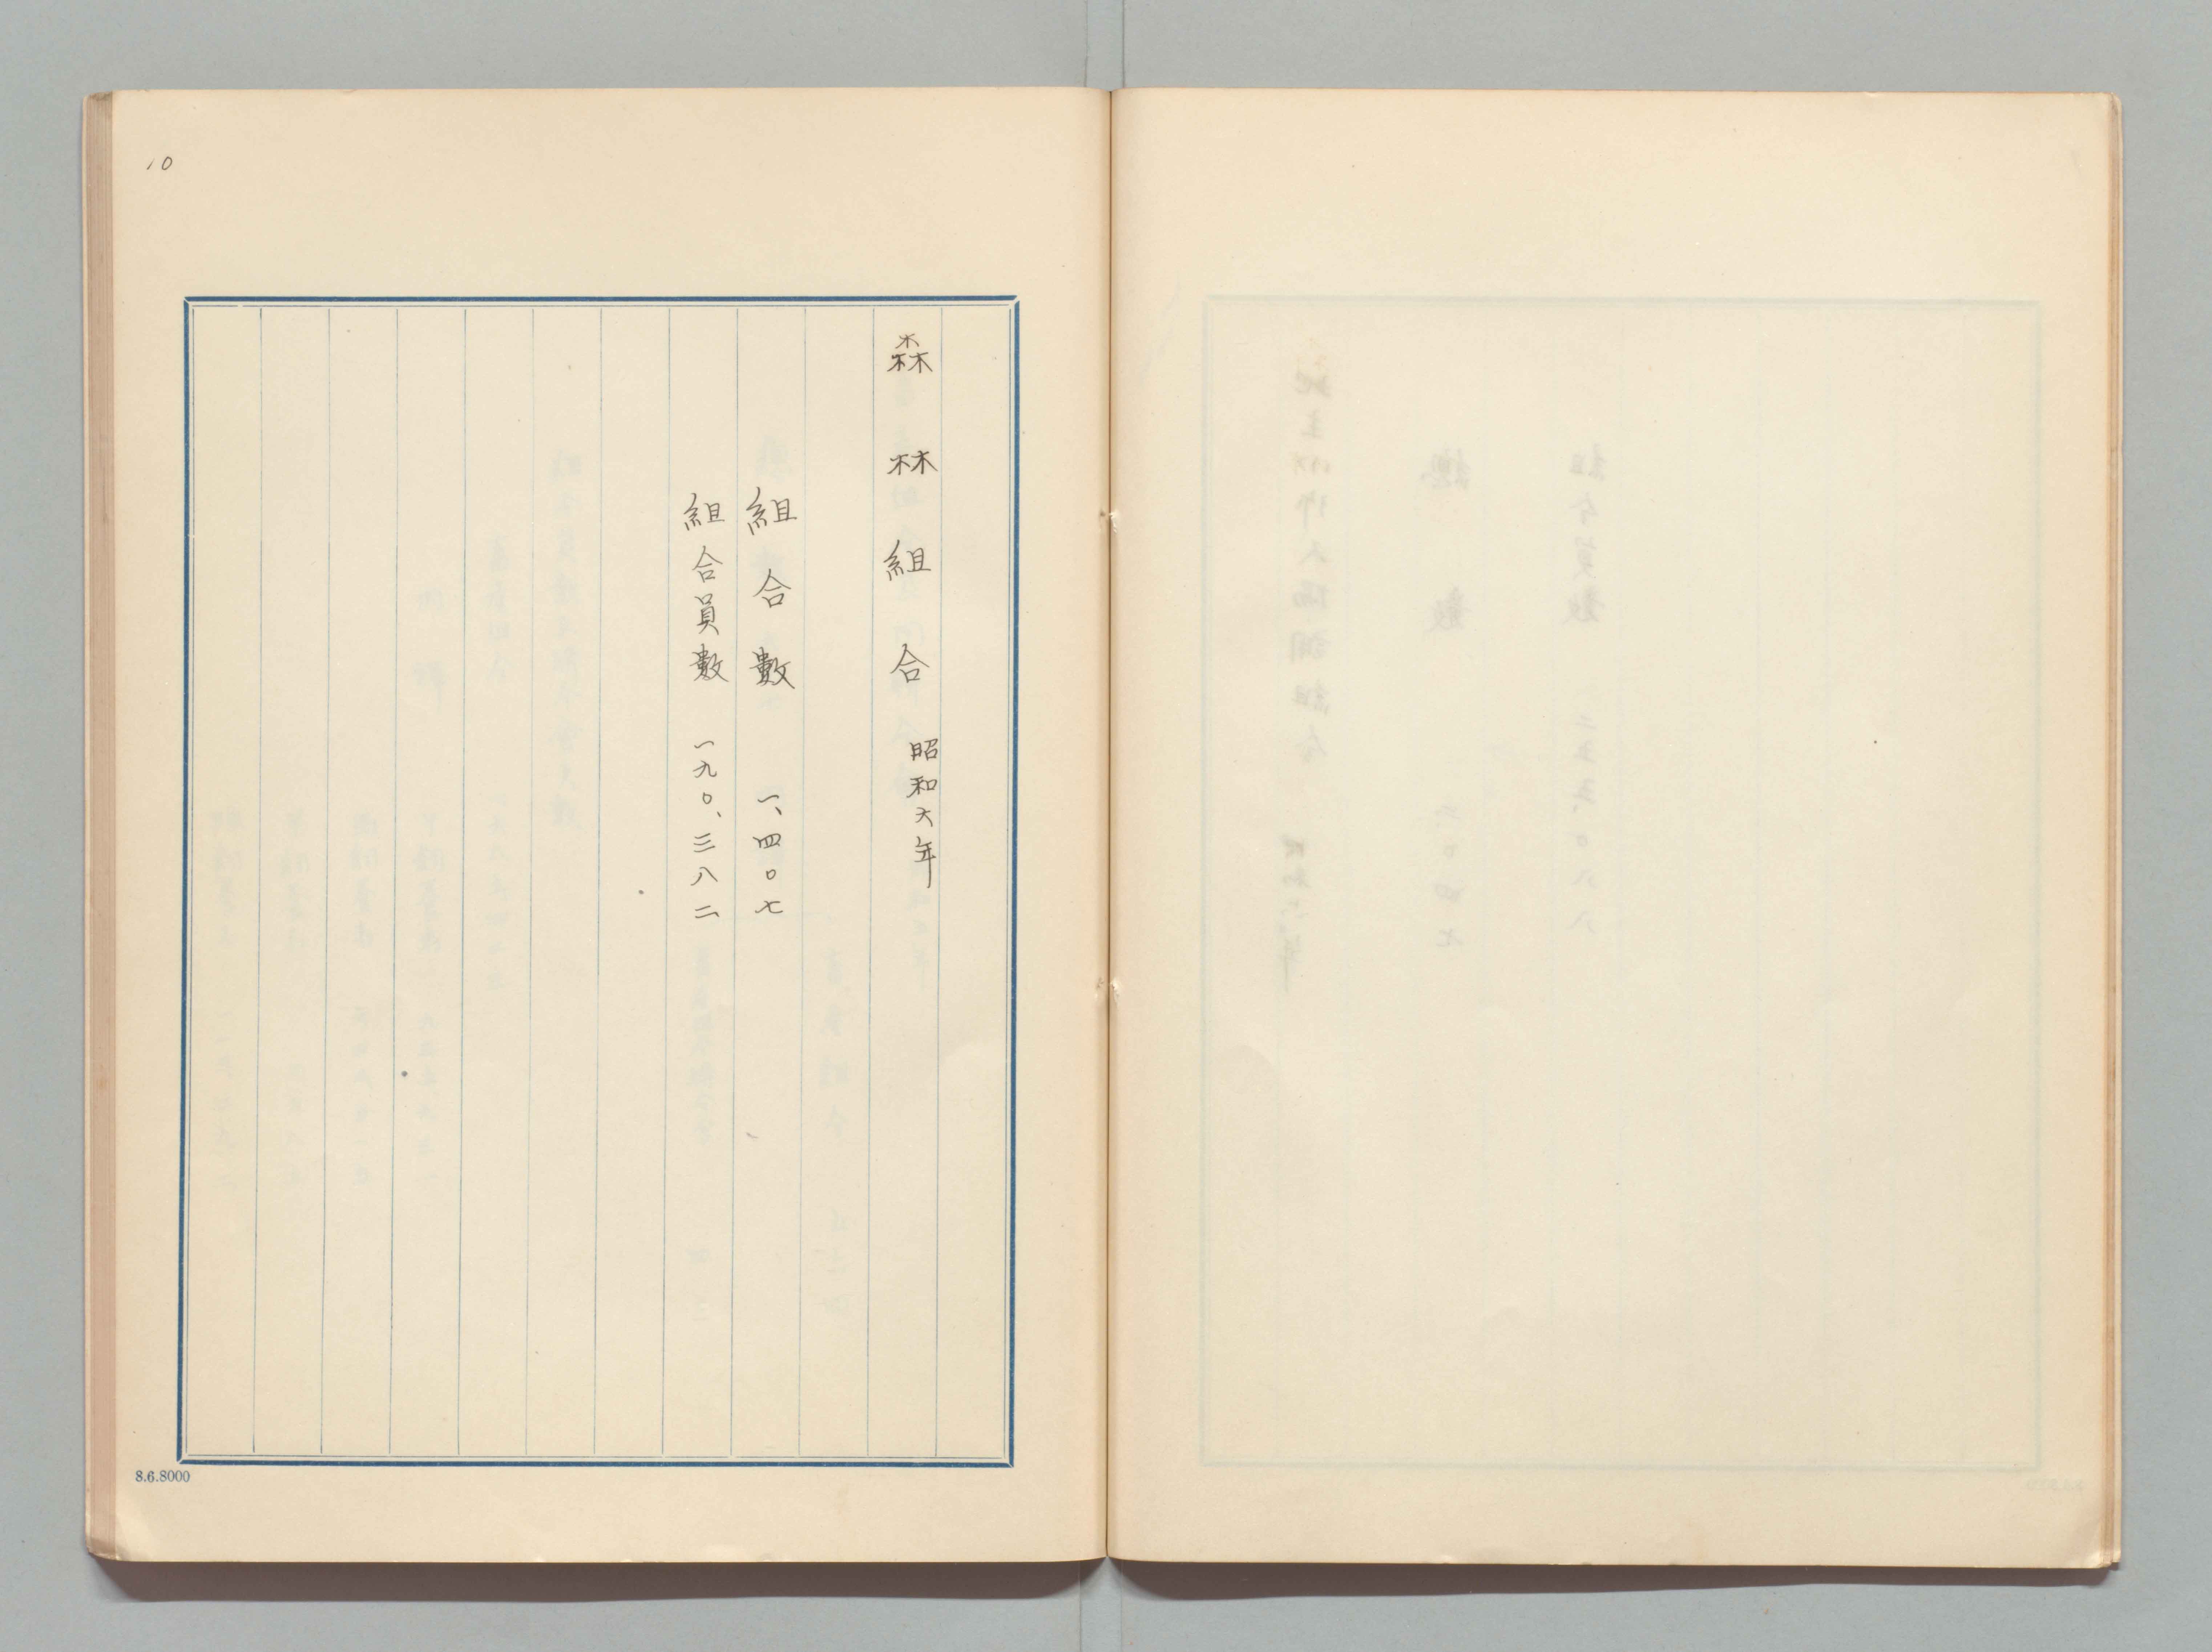 森林組合 昭和六年
組合數 一、四〇七
組合員數 一九〇、三八二
10
8.6.8000